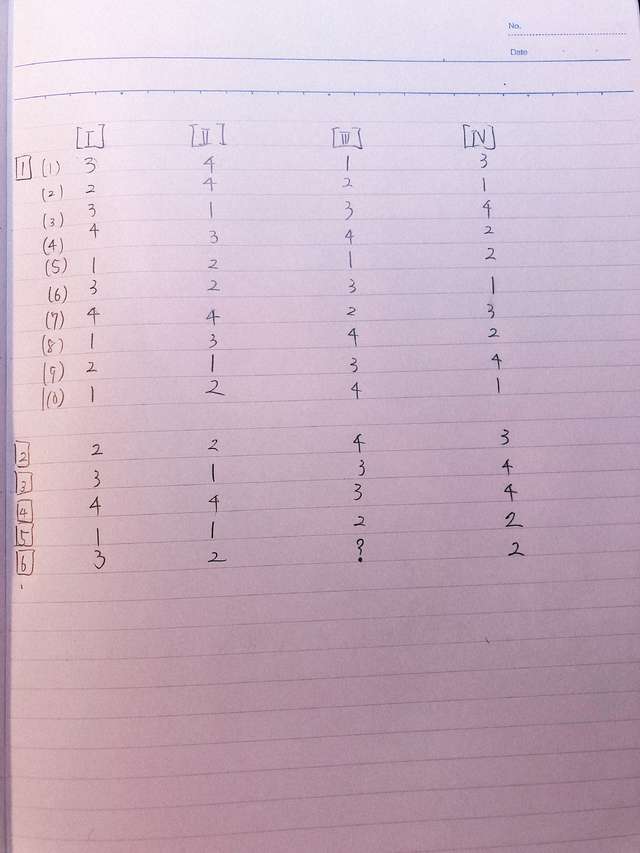 No.
Date
[I] [II] [III] [IV]
1 (1) 3 4 1 3
(2) 2 4 2 1
(3) 3 1 3 4
(4) 4 3 4 2
(5) 1 2 1 2
(6) 3 2 3 1
(7) 4 4 2 3
(8) 1 3 4 2
(9) 2 1 3 4
(10) 1 2 4 1
2 2 2 4 3
3 3 1 3 4
4 4 4 3 4
5 1 1 2 2
6 3 2 ? 2